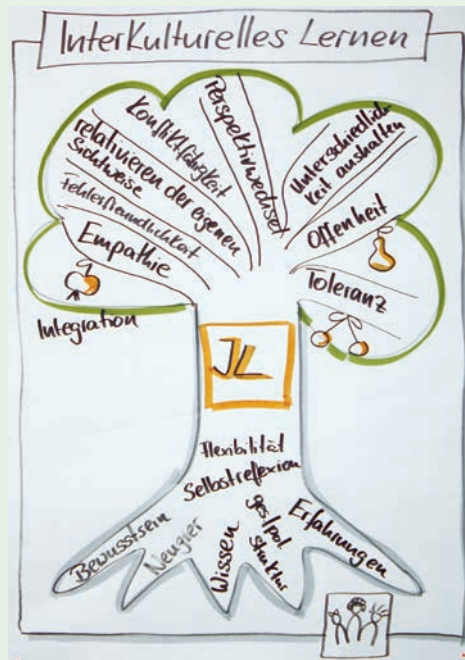 InterKulturelles Lernen
Perspektivwechsel
Konfliktfähigkeit
relativieren der eigenen
Sichtweise
Fehlerfreundlichkeit
Empathie
Unterschiedlich-
keit aushalten
Offenheit
Toleranz
Integration
JL
Flexibilität
Selbstreflexion
Bewusstsein
Neugier
Wissen
ges/pol
struktur
Erfahrungen